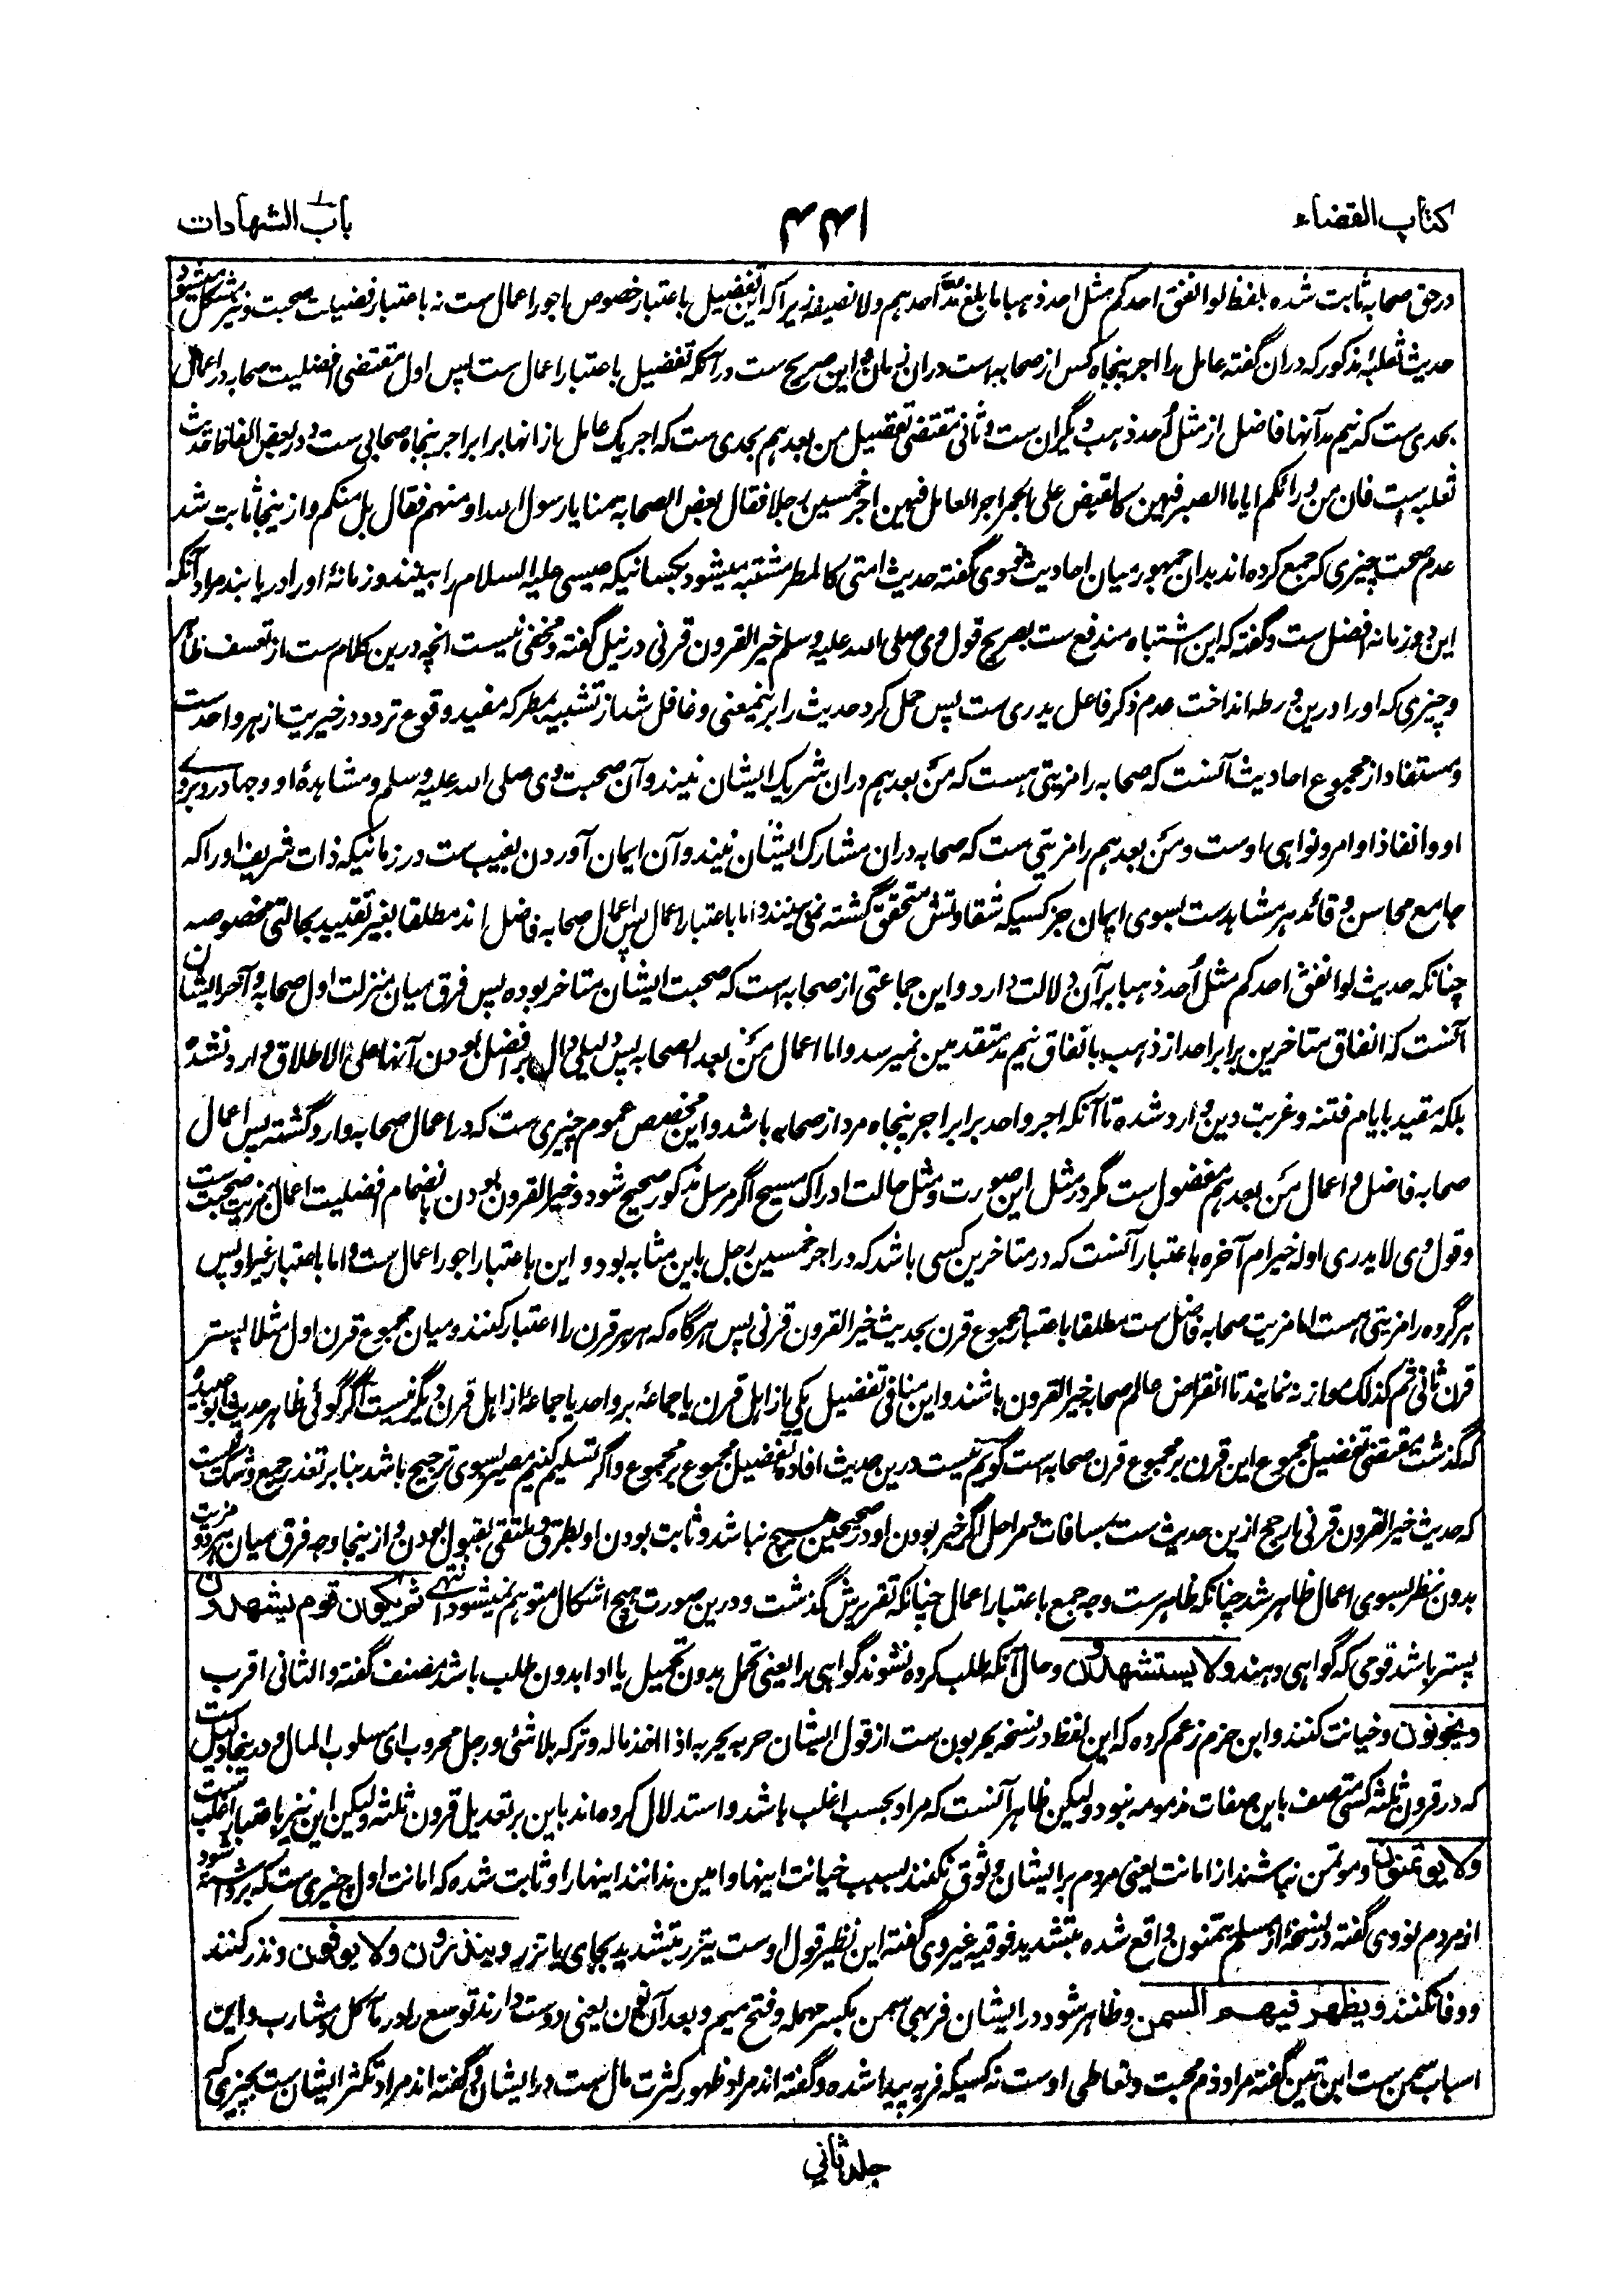 کتاب القضاء
۴۴۱
باب الشهادات
در حق صحابه ثابت شده بلفظ لو انفق احدکم مثل احد ذهبا ما بلغ مد احدهم ولا نصیفه زیرا که این تفضیل باعتبار خصوص اجور اعمال ست نه باعتبار فضیلت صحبت و نیز مشکل میشود
حدیث ثعلبه مذکور که دران گفته عامل را اجر پنجاه کس از صحابه است دران زمان و این صریح ست در آنکه تفضیل باعتبار اعمال ست پس اول مقتضی افضلیت صحابه در اعمال
بحدی ست که نیم مد آنها فاضل از مثل احد ذهب دیگران ست و ثانی مقتضی تفضیل من بعدهم بحدی ست که اجر یک عامل از انها برابر اجر پنجاه صحابی ست و در بعض الفاظ حدیث
ثعلبه است فان من ورائکم ایاما الصبر فیهن کالقبض علی الجمر اجر العامل فیهن اجر خمسین رجلا فقال بعض الصحابة منا یا رسول الله او منهم فقال بل منکم و ازینجا ثابت شد
عدم صحت چیزی که جمع کرده اند بدان جمهور میان احادیث نووی گفته حدیث امتی کالمطر مشتبه میشود بکسانیکه عیسی علیه السلام را ببینند و زمانهٔ او را دریابند مراد آنکه
این دو زمانه افضل ست و گفته که این اشتباه مندفع ست بصریح قول وی صلی الله علیه وسلم خیر القرون قرنی در نیل گفته و مخفی نیست انچه درین کلام ست از تعسف ظاهر
و چیزی که او را درین ورطه انداخت عدم ذکر فاعل یدری ست پس حمل کرد حدیث را برینمعنی و غافل شد از تشبیه بمطر که مفید وقوع تردد در خیریت از هر واحد ست
و مستفاد از مجموع احادیث آنست که صحابه را مزیتی هست که من بعدهم دران شریک ایشان نیند و آن صحبت وی صلی الله علیه وسلم و مشاهدهٔ او و جهاد روبروے
او و انفاذ اوامر و نواهی اوست و من بعدهم را مزیتی ست که صحابه دران مشارک ایشان نیند و آن ایمان آوردن بغیب ست در زمانیکه ذات شریف او را که
جامع محاسن و قائد هر مشاهدست بسوی ایمان جز کسیکه شقاوتش متحقق گشته نمی بینند و اما باعتبار اعمال پس اعمال صحابه فاضل اند مطلقا بغیر تقیید بحالتی مخصوصه
چنانکه حدیث لو انفق احدکم مثل احد ذهبا بر آن دلالت دارد و این جماعتی از صحابه است که صحبت ایشان متاخر بوده پس فرق میان منزلت اول صحابه و آخر ایشان
آنست که انفاق متاخرین برابر احد از ذهب باتفاق نیم مد متقدمین نمیرسد و اما اعمال من بعد الصحابه پس دلیلی دال بر افضل بودن آنها علی الاطلاق وارد نشده
بلکه مقید بایام فتنه و غربت دین وارد شده تا آنکه اجر واحد برابر اجر پنجاه مرد از صحابه باشد و این مخصص عموم چیزی ست که در اعمال صحابه وارد گشته پس اعمال
صحابه فاضل و اعمال من بعدهم مفضول ست مگر در مثل این صورت و مثل حالت ادراک مسیح اگر مرسل مذکور صحیح شود و خیر القرون بودن بانضمام افضلیت اعمال بمزیت صحبت ست
و قول وی لا یدری اوله خیر ام آخره باعتبار آنست که در متاخرین کسی باشد که در اجر خمسین رجل باین مثابه بود و این باعتبار اجور اعمال ست و اما باعتبار غیر او پس
هر گروه را مزیتی هست اما مزیت صحابه فاضل ست مطلقا باعتبار مجموع قرن بحدیث خیر القرون قرنی پس هرگاه که هر هر قرن را اعتبار کنند و میان مجموع قرن اول مثلا پستر
قرن ثانی ثم کذلک موازنه نمایند تا انقراض عالم صحابه خیر القرون باشند و این منافی تفضیل یکی از اهل قرن یا جماعه بر واحد یا جماعه از اهل قرن دیگر نیست اگر گوئی ظاهر حدیث ابو عبیده
که گذشت مقتضی تفضیل مجموع این قرن بر مجموع قرن صحابه ست گویم نیست درین حدیث افادهٔ تفضیل مجموع بر مجموع و اگر تسلیم کنیم مصیر بسوی ترجیح باشد بنا بر تعذر جمع و شک نیست
که حدیث خیر القرون قرنی ارجح ازین حدیث ست بمسافات و مراحل اگر خیر بودن او در صحیحین هیچ نباشد و ثابت بودن او بطرق و متلقی بقبول بودن و ازینجا وجه فرق میان هر دو مزیت
بدون نظر بسوی اعمال ظاهر شد چنانکه ظاهرست وجه جمع باعتبار اعمال چنانکه تقریرش گذشت و درین صورت هیچ اشکال متوهم نمیشود انتهی ثم یکون قوم یشهدون
پستر باشد قومی که گواهی دهند ولا یستشهدون و حال آنکه طلب کرده نشوند گواهی را یعنی تحمل بدون تحمیل یا ادا بدون طلب باشد مصنف گفته والثانی اقرب
ویخونون و خیانت کنند و ابن حزم زعم کرده که این لفظ در نسخه یحربون ست از قول ایشان حربه یحربه اذا اخذ ماله و ترکه بلا شئی و رجل محروب ای مسلوب المال و درینجا دلیل ست
که در قرون ثلثه کسی متصف باین صفات مذمومه نبود و لیکن ظاهر آنست که مراد بحسب اغلب باشد و استدلال کرده اند باین بر تعدیل قرون ثلثه و لیکن این نیز باعتبار اغلب ست
ولا یؤتمنون و موتمن نباشند از امانت یعنی مردم بر ایشان وثوق نکنند بسبب خیانت اینها و امین ندانند اینها را و ثابت شده که امانت اول چیزی ست که برداشته شود
از مردم نووی گفته در نسخهٔ از مسلم یتمنون واقع شده بتشدید فوقیه غیروی گفته این نظیر قول اوست یتزر بتشدید بجای یاتزر وینذرون ولا یوفون و نذر کنند
و وفا نکنند ویظهر فیهم السمن و ظاهر شود در ایشان فربهی سمن بکسر مهمله و فتح میم و بعد آن نون یعنی دوست دارند توسع را در مآکل و مشارب و این
اسباب سمن ست ابن تین گفته مراد ذم محبت و تعاطی اوست نه کسیکه فربه پیدا شده و گفته اند مراد ظهور کثرت مال ست در ایشان و گفته اند مراد تکثر ایشان ست بچیزی که
جلد ثانی